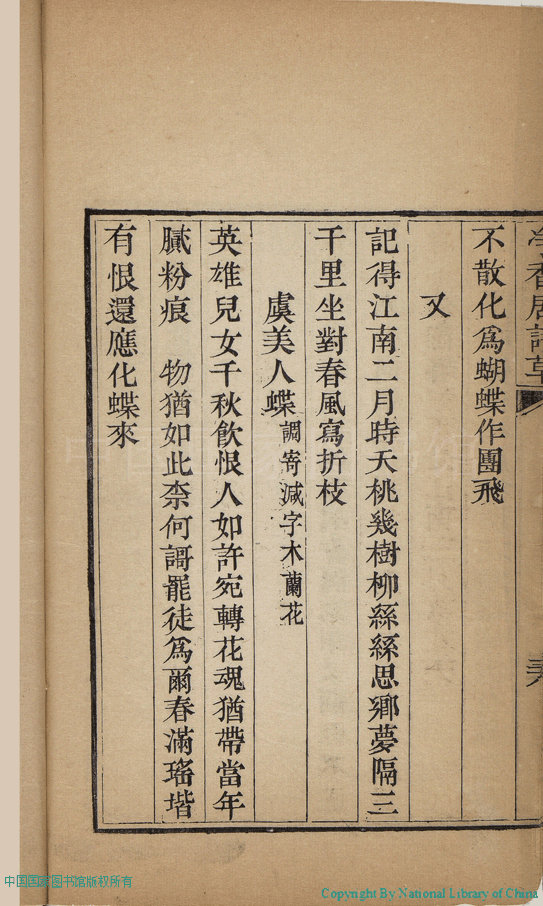 不散化爲蝴蝶作團飛
又
記得江南二月時夭桃幾樹柳絲絲思鄉夢隔三
千里坐對春風寫折枝
虞美人蝶調寄減字木蘭花
英雄兒女千秋飲恨人如許宛轉花魂猶帶當年
膩粉痕　物猶如此柰何謌罷徒爲爾春滿瑤堦
有恨還應化蝶來
中国国家图书馆版权所有
Copyright By National Library of China